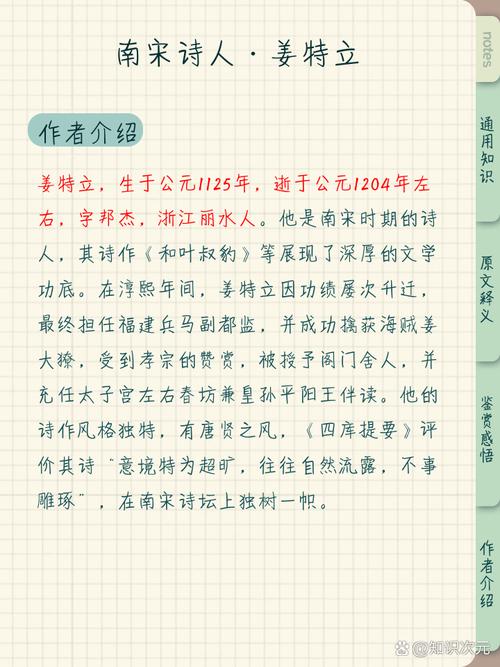 南宋诗人·姜特立
notes
作者介绍
姜特立，生于公元1125年，逝于公元1204年左
右，字邦杰，浙江丽水人。他是南宋时期的诗
人，其诗作《和叶叔豹》等展现了深厚的文学
功底。在淳熙年间，姜特立因功绩屡次升迁，
最终担任福建兵马副都监，并成功擒获海贼姜
大獠，受到孝宗的赞赏，被授予阁门舍人，并
充任太子宫左右春坊兼皇孙平阳王伴读。他的
诗作风格独特，有唐贤之风，《四库提要》评
价其诗“意境特为超旷，往往自然流露，不事
雕琢”，在南宋诗坛上独树一帜。
通用知识
原文释义
鉴赏感悟
作者介绍
知识次元